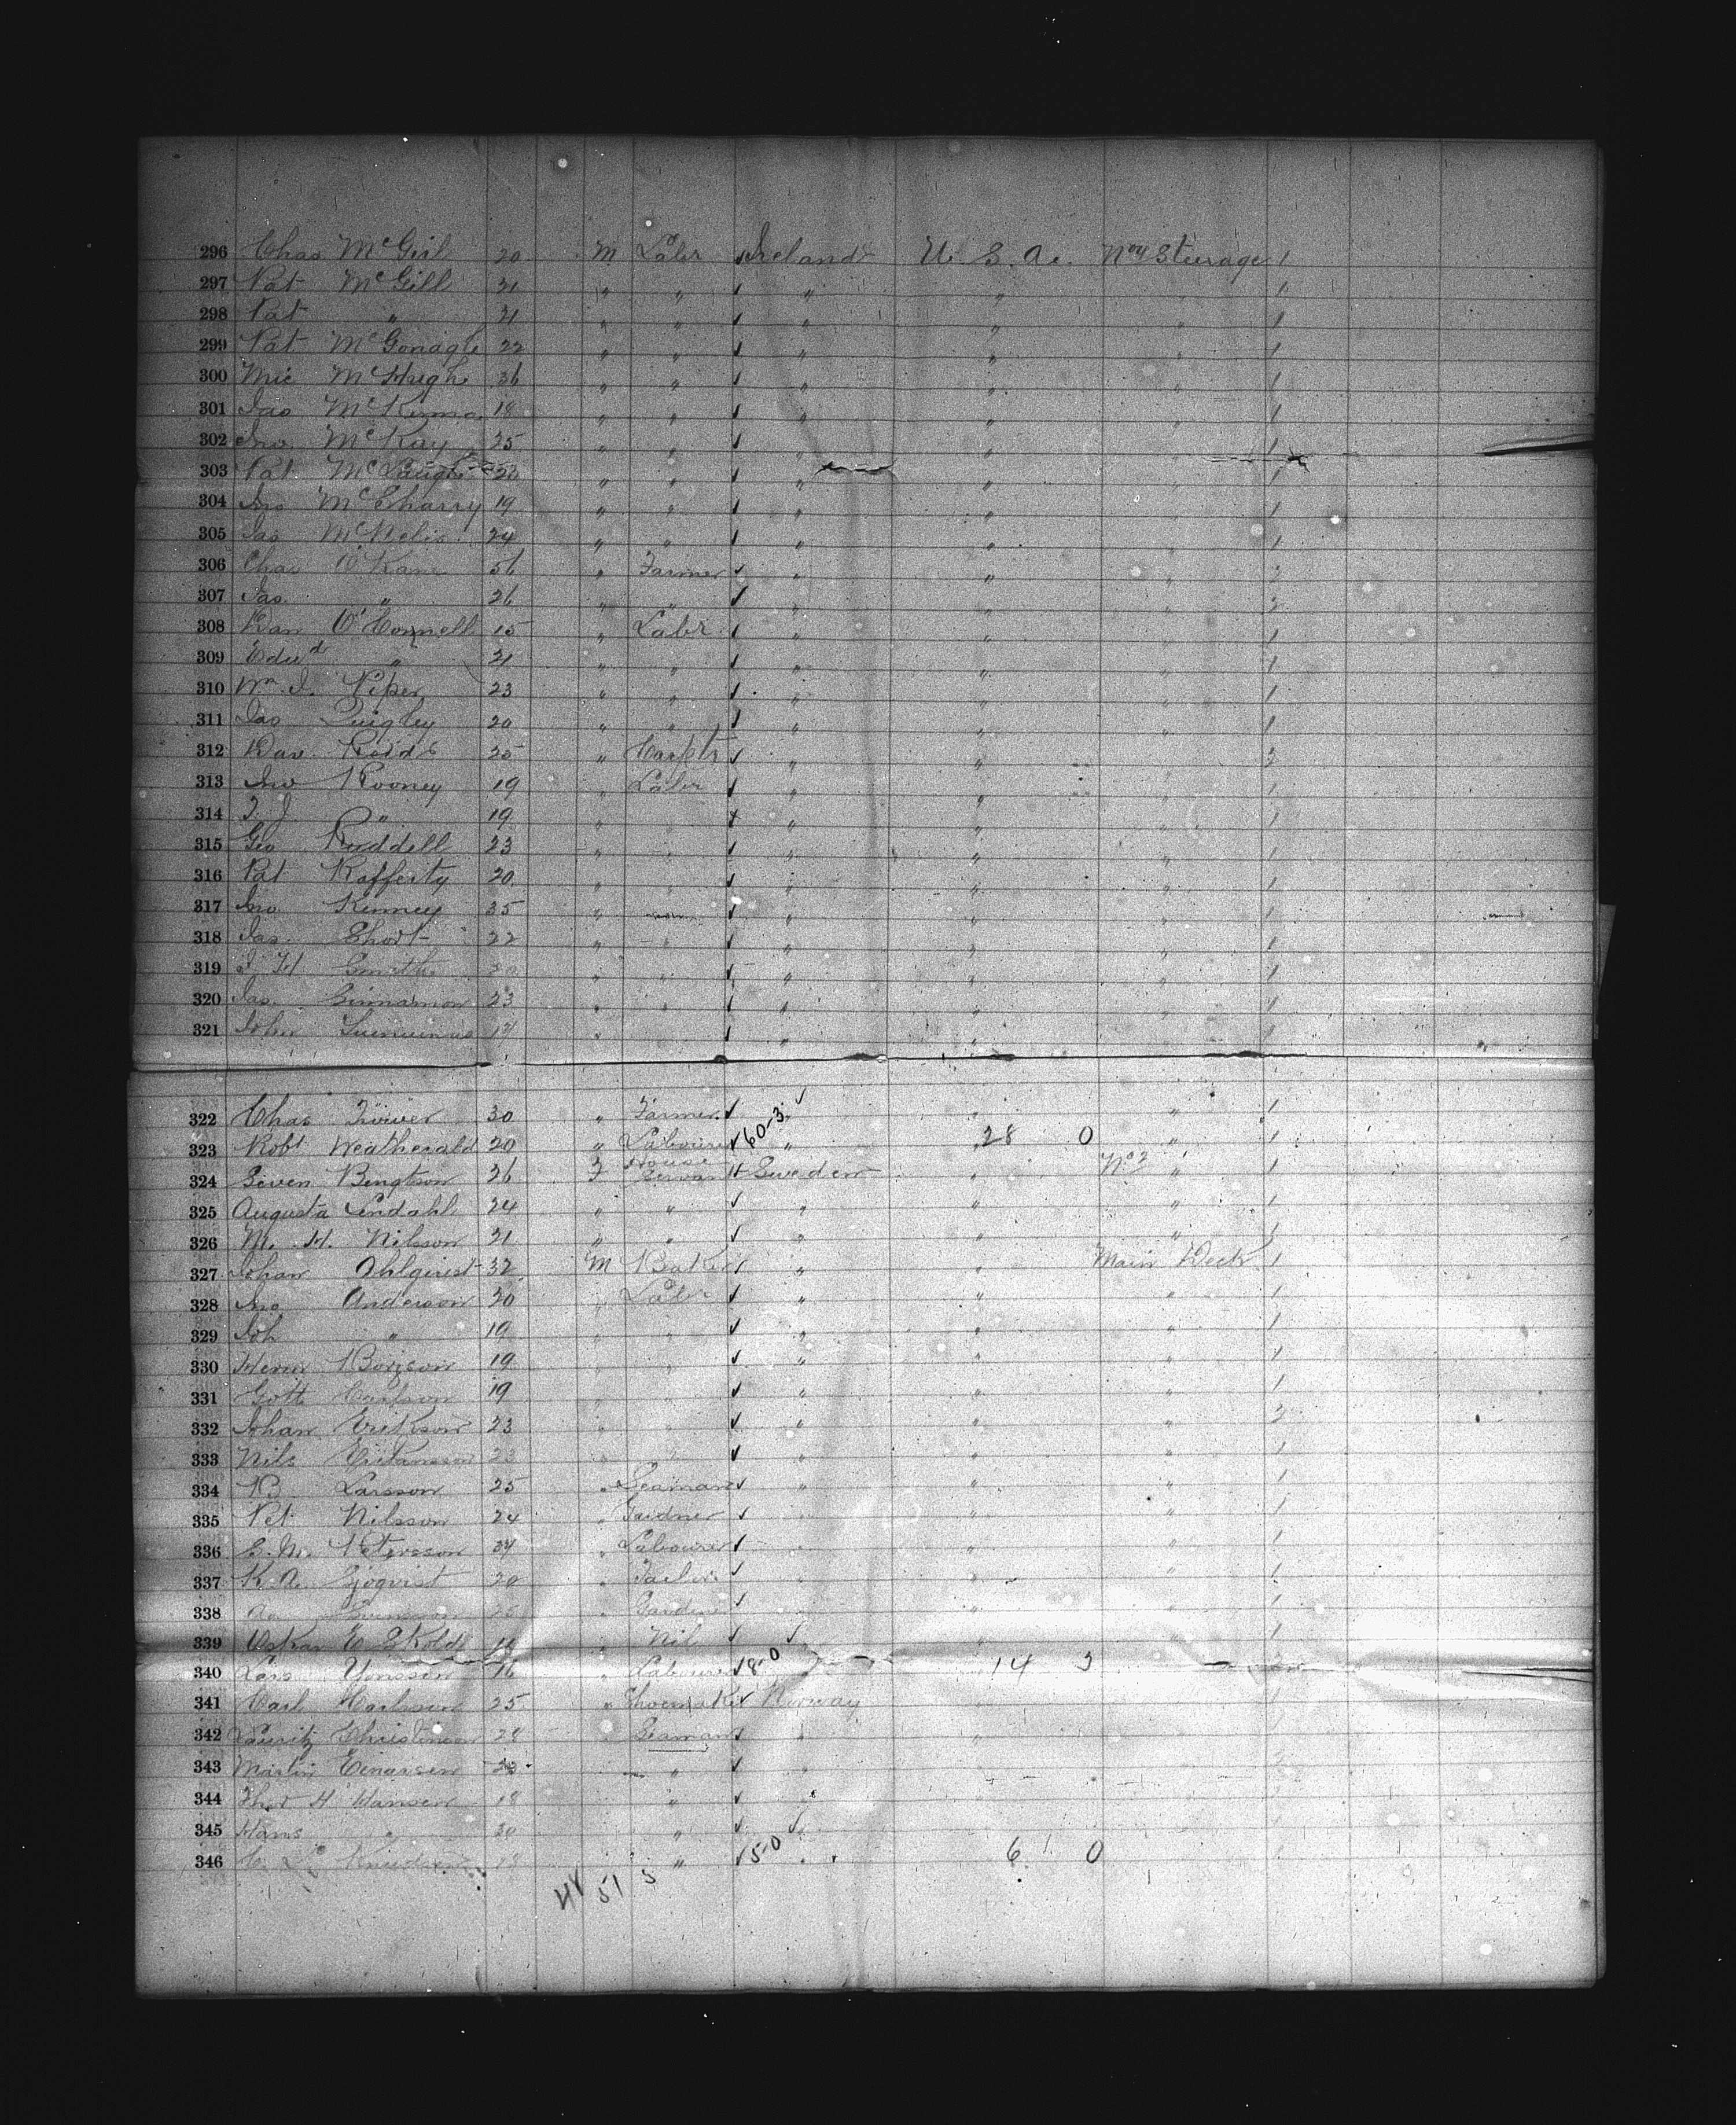 296 Chas McGirl 20 M Labr Ireland U. S. A. No 4 Steerage 1
297 Pat McGill 21 " " " " " 1
298 Pat " 21 " " " " " 1
299 Pat McGonagle 22 " " " " " 1
300 Mic McHugh 36 " " " " " 1
301 Jas 18 " " " " " 1
302 Jno McKay 25 " " " " " 1
303 Pat 20 " " " " " 1
304 Jno McSharry 19 " " " " " 1
305 Jas McNelis 24 " " " " " 1
306 Chas O'Kane 56 " Farmer " " " 2
307 Jas " 26 " " " " " 2
308 Dan O'Connell 15 " Labr " " " 1
309 Edwd " 21 " " " " " 1
310 Wm J. Piper 23 " " " " " 1
311 Jas Quigley 20 " " " " " 1
312 Dav 25 " Carptr " " " 2
313 Jno Rooney 19 " Labr " " " 1
314 T. J. " 19 " " " " " 1
315 Geo Ruddell 23 " " " " " 1
316 Pat Rafferty 20 " " " " " 1
317 Jno Kenney 35 " " " " 1
318 Jas Short 22 " " " " " 1
319 J. H Smith 20 " " " " " 1
320 Jas Sinnamon 23 " " " " " 1
321 John " " " 1
322 Chas 30 " Farmer " " " 1
60-3
323 Robt Weatherald 20 " Labourer " 28 0 " 1
324 Seven Bengtson 26 F House Servant Sweden " No 2 " 1
325 Augusta Lindahl 24 " " " " " 1
326 M. H. Nilsson 21 " " " " " 1
327 Johan Ohlquist 32 M Baker " " Main Deck 1
328 Jno Anderson 30 " Labr " " " 1
329 Joh " 19 " " " " " 1
330 Herm 19 " " " " " 1
331 Gott Carlson 19 " " " " 1
332 Johan Erikson 23 " " " " 2
333 Nils 23 " " " " " 1
334 B Larsson 25 " Seaman " " " 1
335 Pet Nilsson 24 " Gardner " " 1
336 Petersson 34 " Labourer " " " 1
337 K. A. Sjoqvist 20 " " " " 1
338 25 " " " 1
339 Oskar E Skold " Nil " 1
340 Lars 16 " Labourer 18-0 14 3
341 Carl Carlsson 25 " Shoemaker Norway " 1
342 Lauritz 28 " Seaman " "
343 Martin Einarsen " "
344 H Hansen 18 "
345 Hans " 30 "
346 18 " 15-0 6 0
51 3